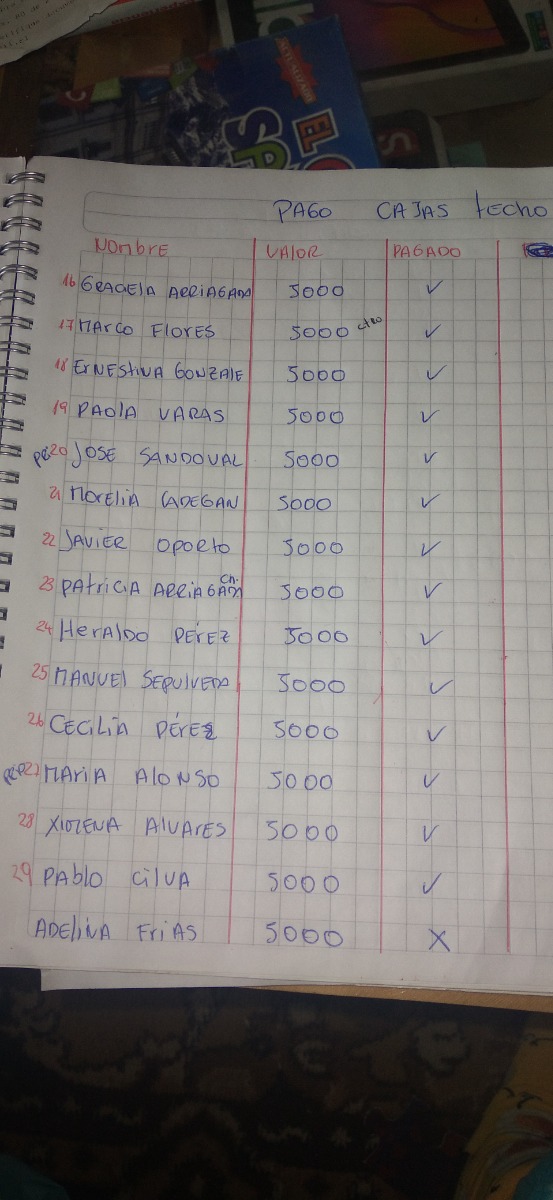 ACTUALIZADO
EL
PAGO CAJAS techo
Nombre VALOR PAGADO
16 GRACIELA ARRIAGADA 5000 ✓
17 MARCO FLORES 5000 ✓
18 ERNESTINA GONZALE 5000 ✓
19 PAOLA VARAS 5000 ✓
20 JOSE SANDOVAL 5000 ✓
21 NORELIA CADEGAN 5000 ✓
22 JAVIER OPORTO 5000 ✓
23 PATRICIA ARRIAGADA Ch. 5000 ✓
24 HERALDO PÉREZ 5000 ✓
25 MANUEL SEPULVEDA 5000 ✓
26 CECILIA PÉREZ 5000 ✓
27 MARIA ALONSO 5000 ✓
28 XIMENA ALVARES 5000 ✓
29 PABLO CILVA 5000 ✓
ADELINA FRIAS 5000 X